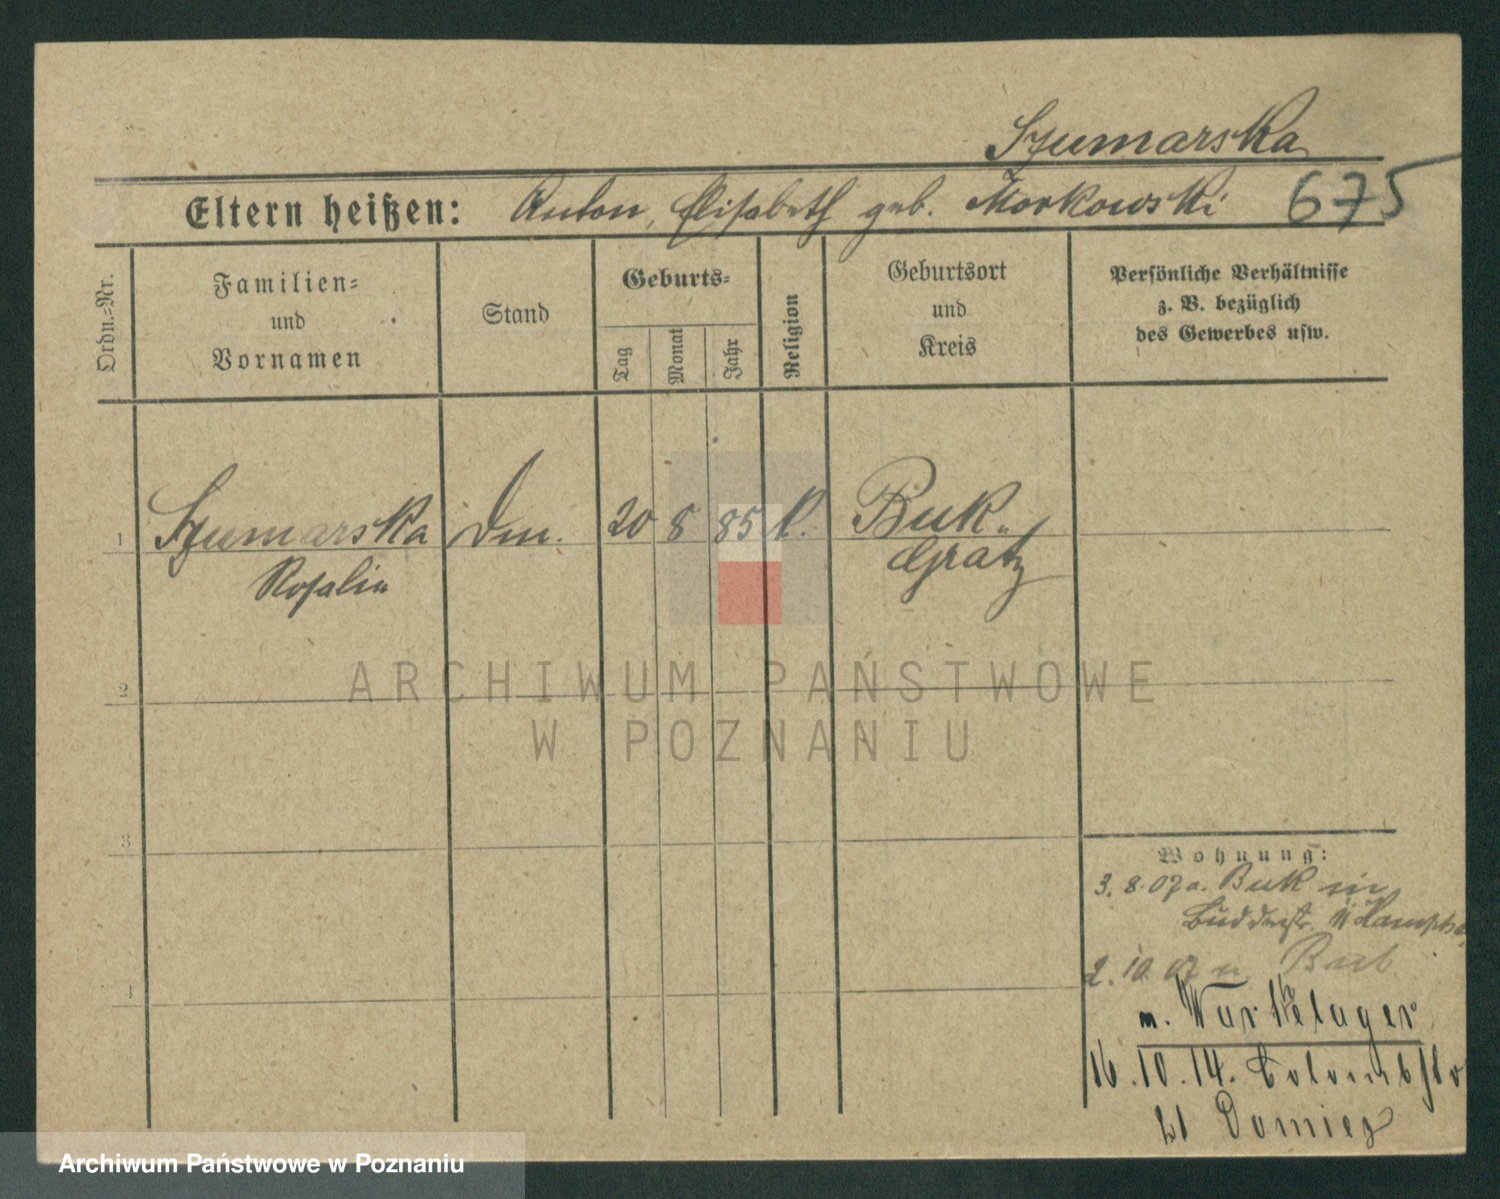 Szumarska
Eltern heißen: Anton, Elisabeth geb. Morkowski 675
Ordn.=Nr.
Familien=
und
Vornamen
Stand
Geburts=
Tag
Monat
Jahr
Religion
Geburtsort
und
Kreis
Persönliche Verhältnisse
z. B. bezüglich
des Gewerbes usw.
1 Szumarska Dm. 20 8 85 k. Buk
Rosalie Grätz
2
3
4
Wohnung:
3. 8. 07 a. Buk in
2. 10. 07 n. Buk
n. Wartelager
16. 10. 14.
21
ARCHIWUM PAŃSTWOWE
W POZNANIU
Archiwum Państwowe w Poznaniu